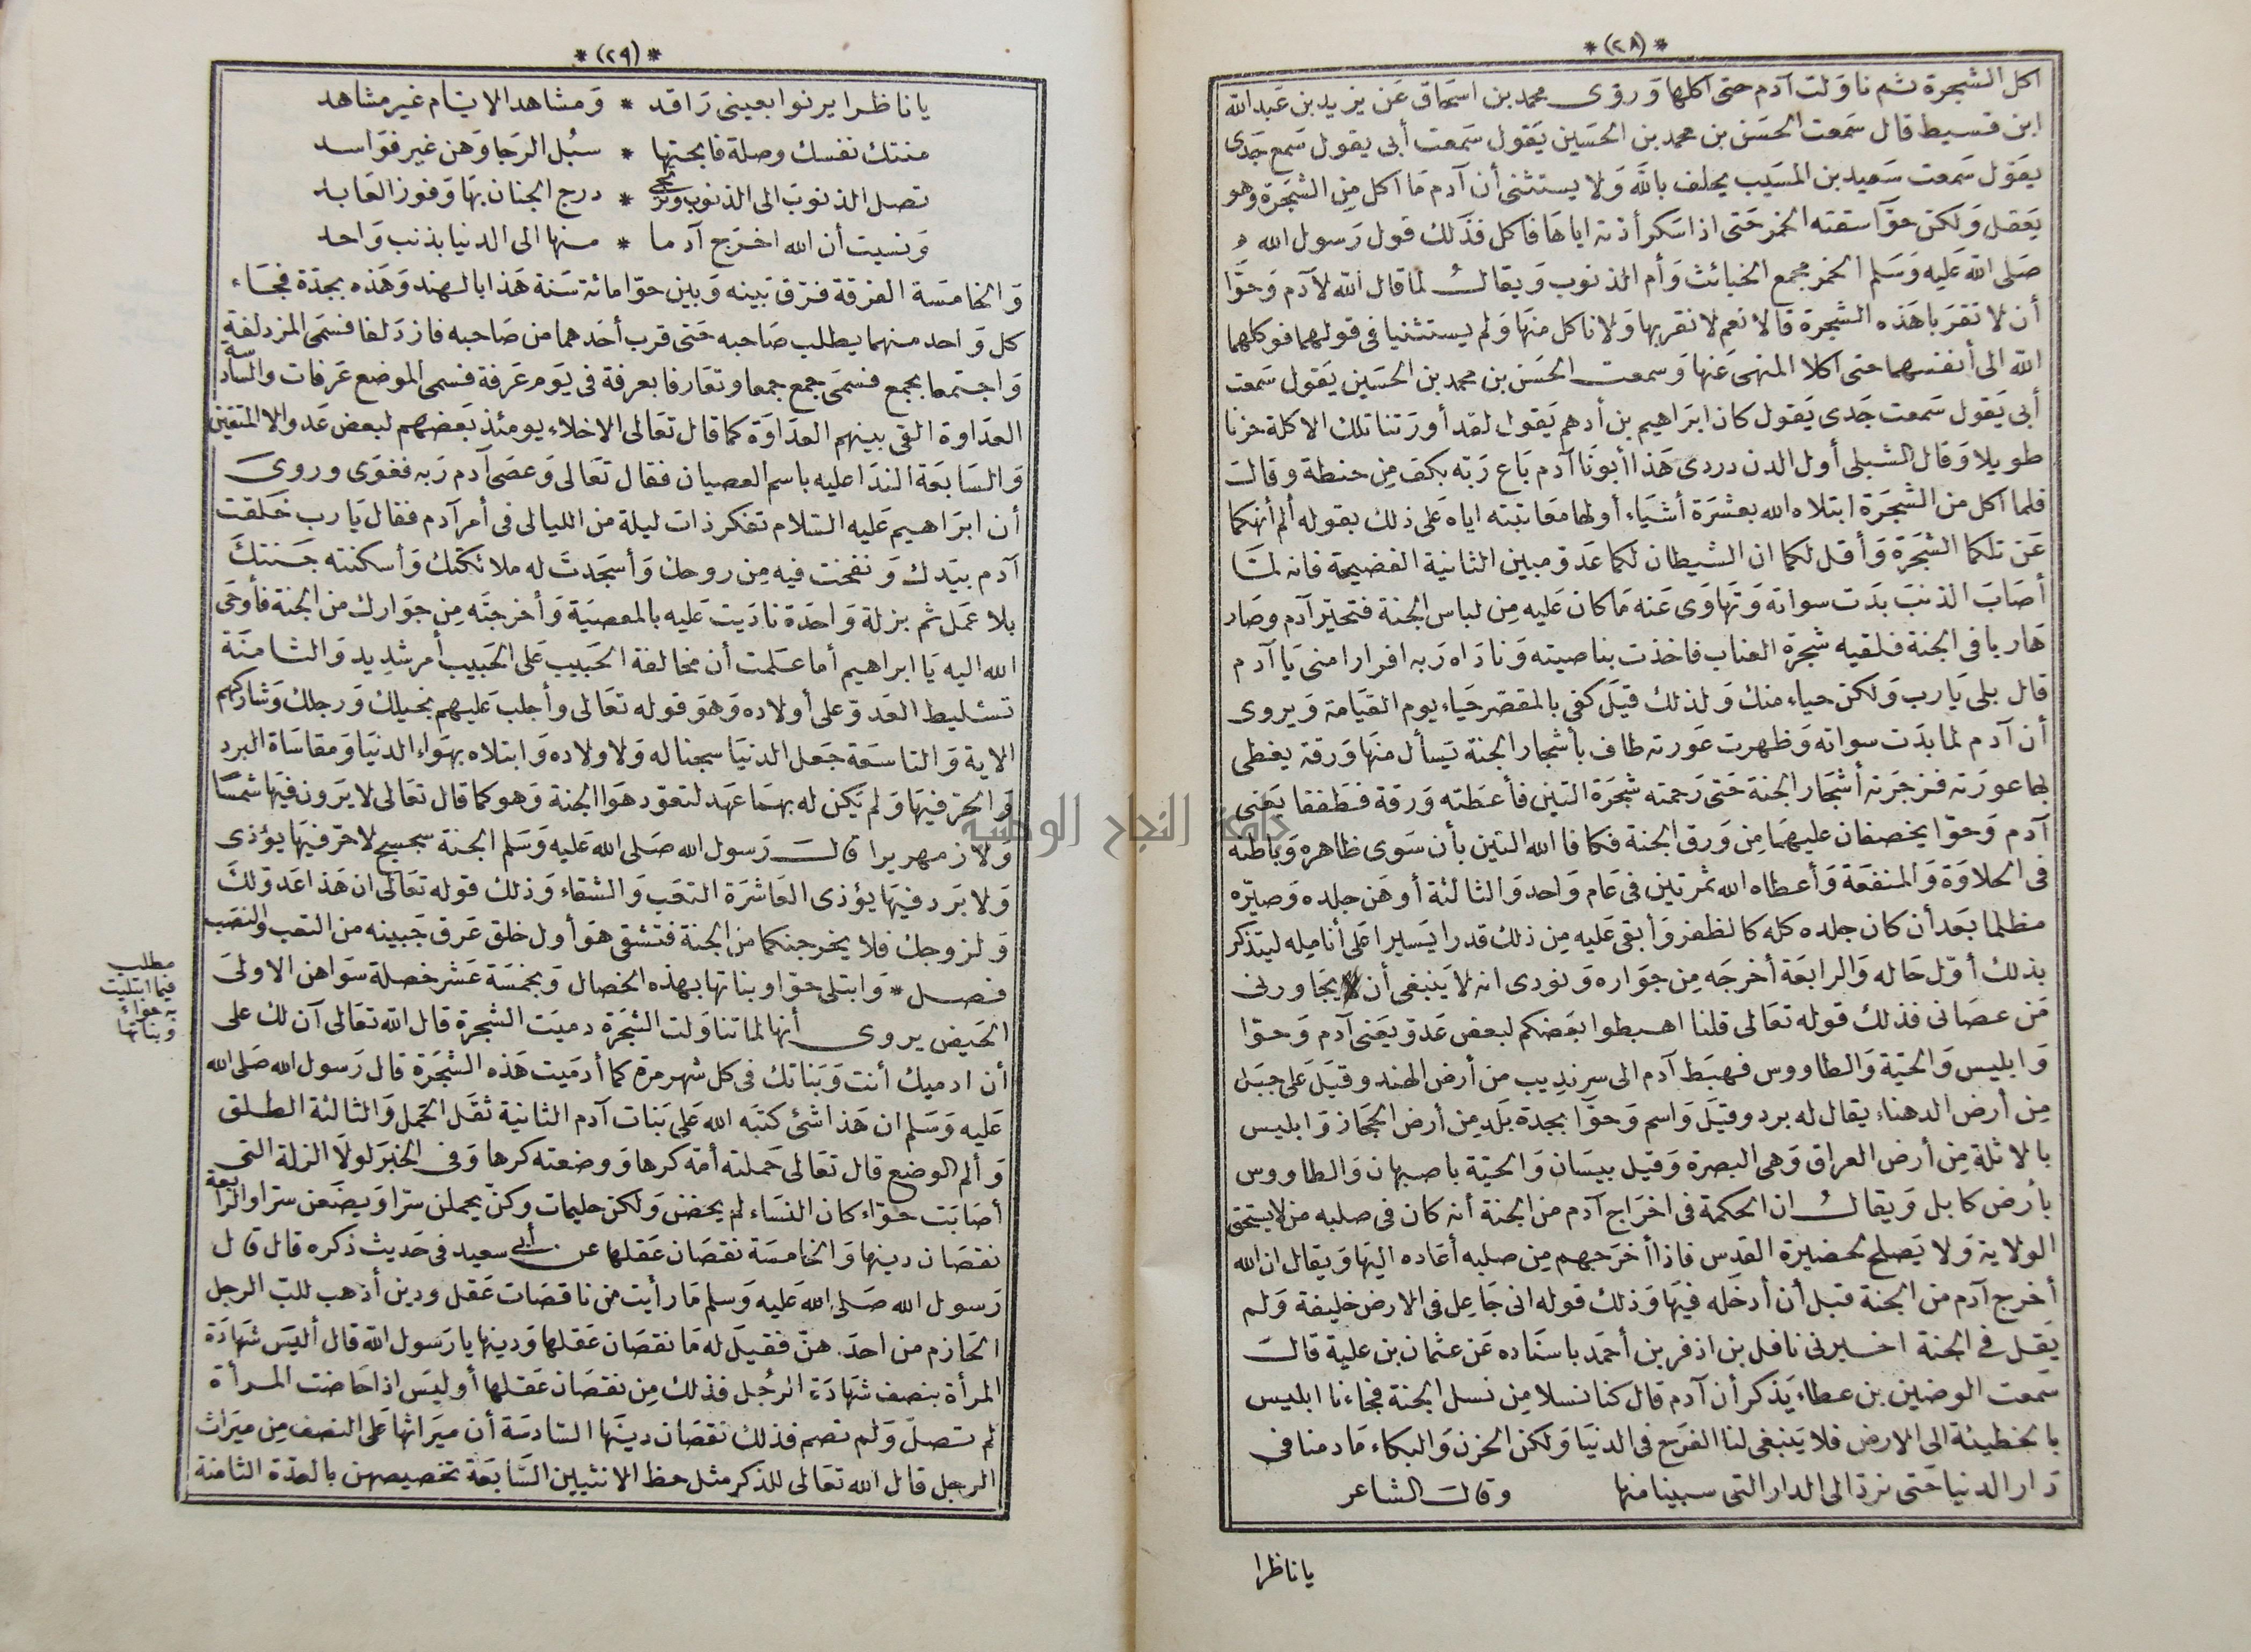 * (٢٨) *
اكل الشجرة ثم ناولت آدم حتى اكلها وروى محمد بن اسحاق عن يزيد بن عبد الله
ابن قسيط قال سمعت الحسن بن محمد بن الحسين يقول سمعت أبى يقول سمع جدى
يقول سمعت سعيد بن المسيب يحلف بالله ولا يستثنى أن آدم ما اكل من الشجرة وهو
يعقل ولكن حوآ سقته الخمر حتى اذا سكر أذته اياها فاكل فذلك قول رسول الله
صلى الله عليه وسلم الخمر مجمع الخبائث وأم الذنوب ويقال لما قال الله لآدم وحوّا
أن لا تقربا هذه الشجرة قالا نعم لا نقربها ولا ناكل منها ولم يستثنيا فى قولهما فوكلهما
الله الى أنفسهما حتى اكلا المنهى عنها وسمعت الحسن بن محمد بن الحسين يقول سمعت
أبى يقول سمعت جدى يقول كان ابراهيم بن أدهم يقول لقد أورثتنا تلك الاكلة حزنا
طويلا وقال الشبلى أول الدن دردى هذا أبونا آدم باع ربه بكف من حنطة وقالت
فلما اكل من الشجرة ابتلاه الله بعشرة أشياء أولها معاتبته اياه على ذلك بقوله ألم أنهكما
عن تلكما الشجرة وأقل لكما ان الشيطان لكما عدو مبين الثانية الفضيحة فانه لما
أصاب الذنب بدت سواته وتهاوى عنه ما كان عليه من لباس الجنة فتحيّر آدم وصار
هاربا فى الجنة فلقيه شجرة العناب فاخذت بناصيته وناداه ربه افرارا منى يا آدم
قال بلى يا رب ولكن حياء منك ولذلك قيل كفى بالمقصر حياء يوم القيامة ويروى
أن آدم لما بدت سواته وظهرت عورته طاف بأشجار الجنة يسأل منها ورقة يغطى
بها عورته فزجرته أشجار الجنة حتى رحمته شجرة التين فأعطته ورقة فطفقا يعنى
آدم وحوّا يخصفان عليهما من ورق الجنة فكافا الله التين بأن سوى ظاهره وباطنه
فى الحلاوة والمنفعة وأعطاه الله ثمرتين فى عام واحد والثالثة أوهن جلده وصيّره
مظلما بعد أن كان جلده كله كالظفر وأبقى عليه من ذلك قدرا يسيرا على أنامله ليتذكر
بذلك أوّل حاله والرابعة أخرجه من جواره ونودى انه لا ينبغى أن يجاورنى
من عصانى فذلك قوله تعالى قلنا اهبطوا بعضكم لبعض عدو يعنى آدم وحوّا
وابليس والحيّة والطاووس فهبط آدم الى سرنديب من أرض الهند وقيل على جبل
من أرض الدهناء يقال له برد وقيل واسم وحوّا بجدة بلد من أرض الحجاز وابليس
بالاثلة من أرض العراق وهى البصرة وقيل ببيسان والحيّة باصبهان والطاووس
بأرض كابل ويقال ان الحكمة فى اخراج آدم من الجنة أنه كان فى صلبه من لا يستحق
الولاية ولا يصلح لحضيرة القدس فاذا أخرجهم من صلبه أعاده اليها ويقال ان الله
أخرج آدم من الجنة قبل أن أدخله فيها وذلك قوله انى جاعل فى الارض خليفة ولم
يقل فى الجنة اخبرنى نافل بن اذفر بن أحمد باسناده عن عثمان بن علية قال
سمعت الوضين بن عطاء يذكر أن آدم قال كنا نسلا من نسل الجنة فجاءنا ابليس
بالخطيئة الى الارض فلا ينبغى لنا الفرح فى الدنيا ولكن الحزن والبكاء ما دمنا فى
دار الدنيا حتى نردّ الى الدار التى سبينا منها وقال الشاعر
يا ناظرا
* (٢٩) *
يا ناظرا يرنوا بعينى راقد * ومشاهد الايّام غير مشاهد
منتك نفسك وصلة فابحتها * سبُل الرجا وهن غير فواسد
تصل الذنوب الى الذنوب وترتجى * درج الجنان بها وفوز العابد
ونسيت أن الله اخرج آدما * منها الى الدنيا بذنب واحد
والخامسة الفرقة فرّق بينه وبين حوّا مائة سنة هذا بالهند وهذه بجدّة فجاء
كل واحد منهما يطلب صاحبه حتى قرب أحدهما من صاحبه فازدلفا فسمى المزدلفة
واجتمعا بجمع فسمى جمع جمعا وتعارفا بعرفة فى يوم عرفة فسمى الموضع عرفات والسادسة
العداوة القى بينهم العداوة كما قال تعالى الاخلاء يومئذ بعضهم لبعض عدو الا المتقين
والسابعة الندا عليه باسم العصيان فقال تعالى وعصى آدم ربه فغوى وروى
أن ابراهيم عليه السّلام تفكر ذات ليلة من الليالى فى أمر آدم فقال يا رب خلقت
آدم بيدك ونفخت فيه من روحك وأسجدت له ملائكتك وأسكنته جنتك
بلا عمل ثم بزلة واحدة ناديت عليه بالمعصية وأخرجته من جوارك من الجنة فأوحى
الله اليه يا ابراهيم أما علمت أن مخالفة الحبيب على الحبيب أمر شديد والثامنة
تسليط العدوّ على أولاده وهو قوله تعالى وأجلب عليهم بخيلك ورجلك وشاركهم
الاية والتاسعة جعل الدنيا سجنا له ولاولاده وابتلاه بهواء الدنيا ومقاساة البرد
والحرّ فيها ولم يكن له بهما عهد لتعوّد هوا الجنة وهو كما قال تعالى لا يرون فيها شمسا
ولا زمهريرا قال رسول الله صلى الله عليه وسلم الجنة سجسج لا حرّ فيها يؤذى
ولا برد فيها يؤذى العاشرة التعب والشقاء وذلك قوله تعالى ان هذا عدوّ لك
ولزوجك فلا يخرجنكما من الجنة فتشقى هو أول خلق عرق جبينه من التعب والنصب
فصل * وابتلى حوّا وبناتها بهذه الخصال وبخمسة عشر خصلة سواهن الاولى
الحيض يروى أنها لما تناولت الشجرة دميت الشجرة قال الله تعالى آن لك على
أن ادميك أنت وبناتك فى كل شهر مرة كما أدميت هذه الشجرة قال رسول الله صلى الله
عليه وسلم ان هذا شئ كتبه الله على بنات آدم الثانية ثقل الحمل والثالثة الطلق
وألم الوضع قال تعالى حملته أمّه كرها ووضعته كرها وفى الخبر لولا الزلة التى
أصابت حوّاء كان النساء لم يحضن ولكن حليمات وكنّ يحملن سرّا ويضعن سرّا والرابعة
نقصان دينها والخامسة نقصان عقلها عن أبى سعيد فى حديث ذكره قال قال
رسول الله صلى الله عليه وسلم ما رأيت من ناقصات عقل ودين أذهب للبّ الرجل
الحازم من احد هنّ فقيل له ما نقصان عقلها ودينها يا رسول الله قال أليس شهادة
المرأة بنصف شهادة الرجُل فذلك من نقصان عقلها أوليس اذا حاضت المرأة
لم تصلّ ولم تصم فذلك نقصان دينها السّادسة أن ميراثها على النصف من ميراث
الرجل قال الله تعالى للذكر مثل حظ الانثيين السّابعة تخصيصهن بالعدّة الثامنة
مطلب
فيما ابتليت
به حوّاء
وبناتها
جامعة النجاح الوطنية